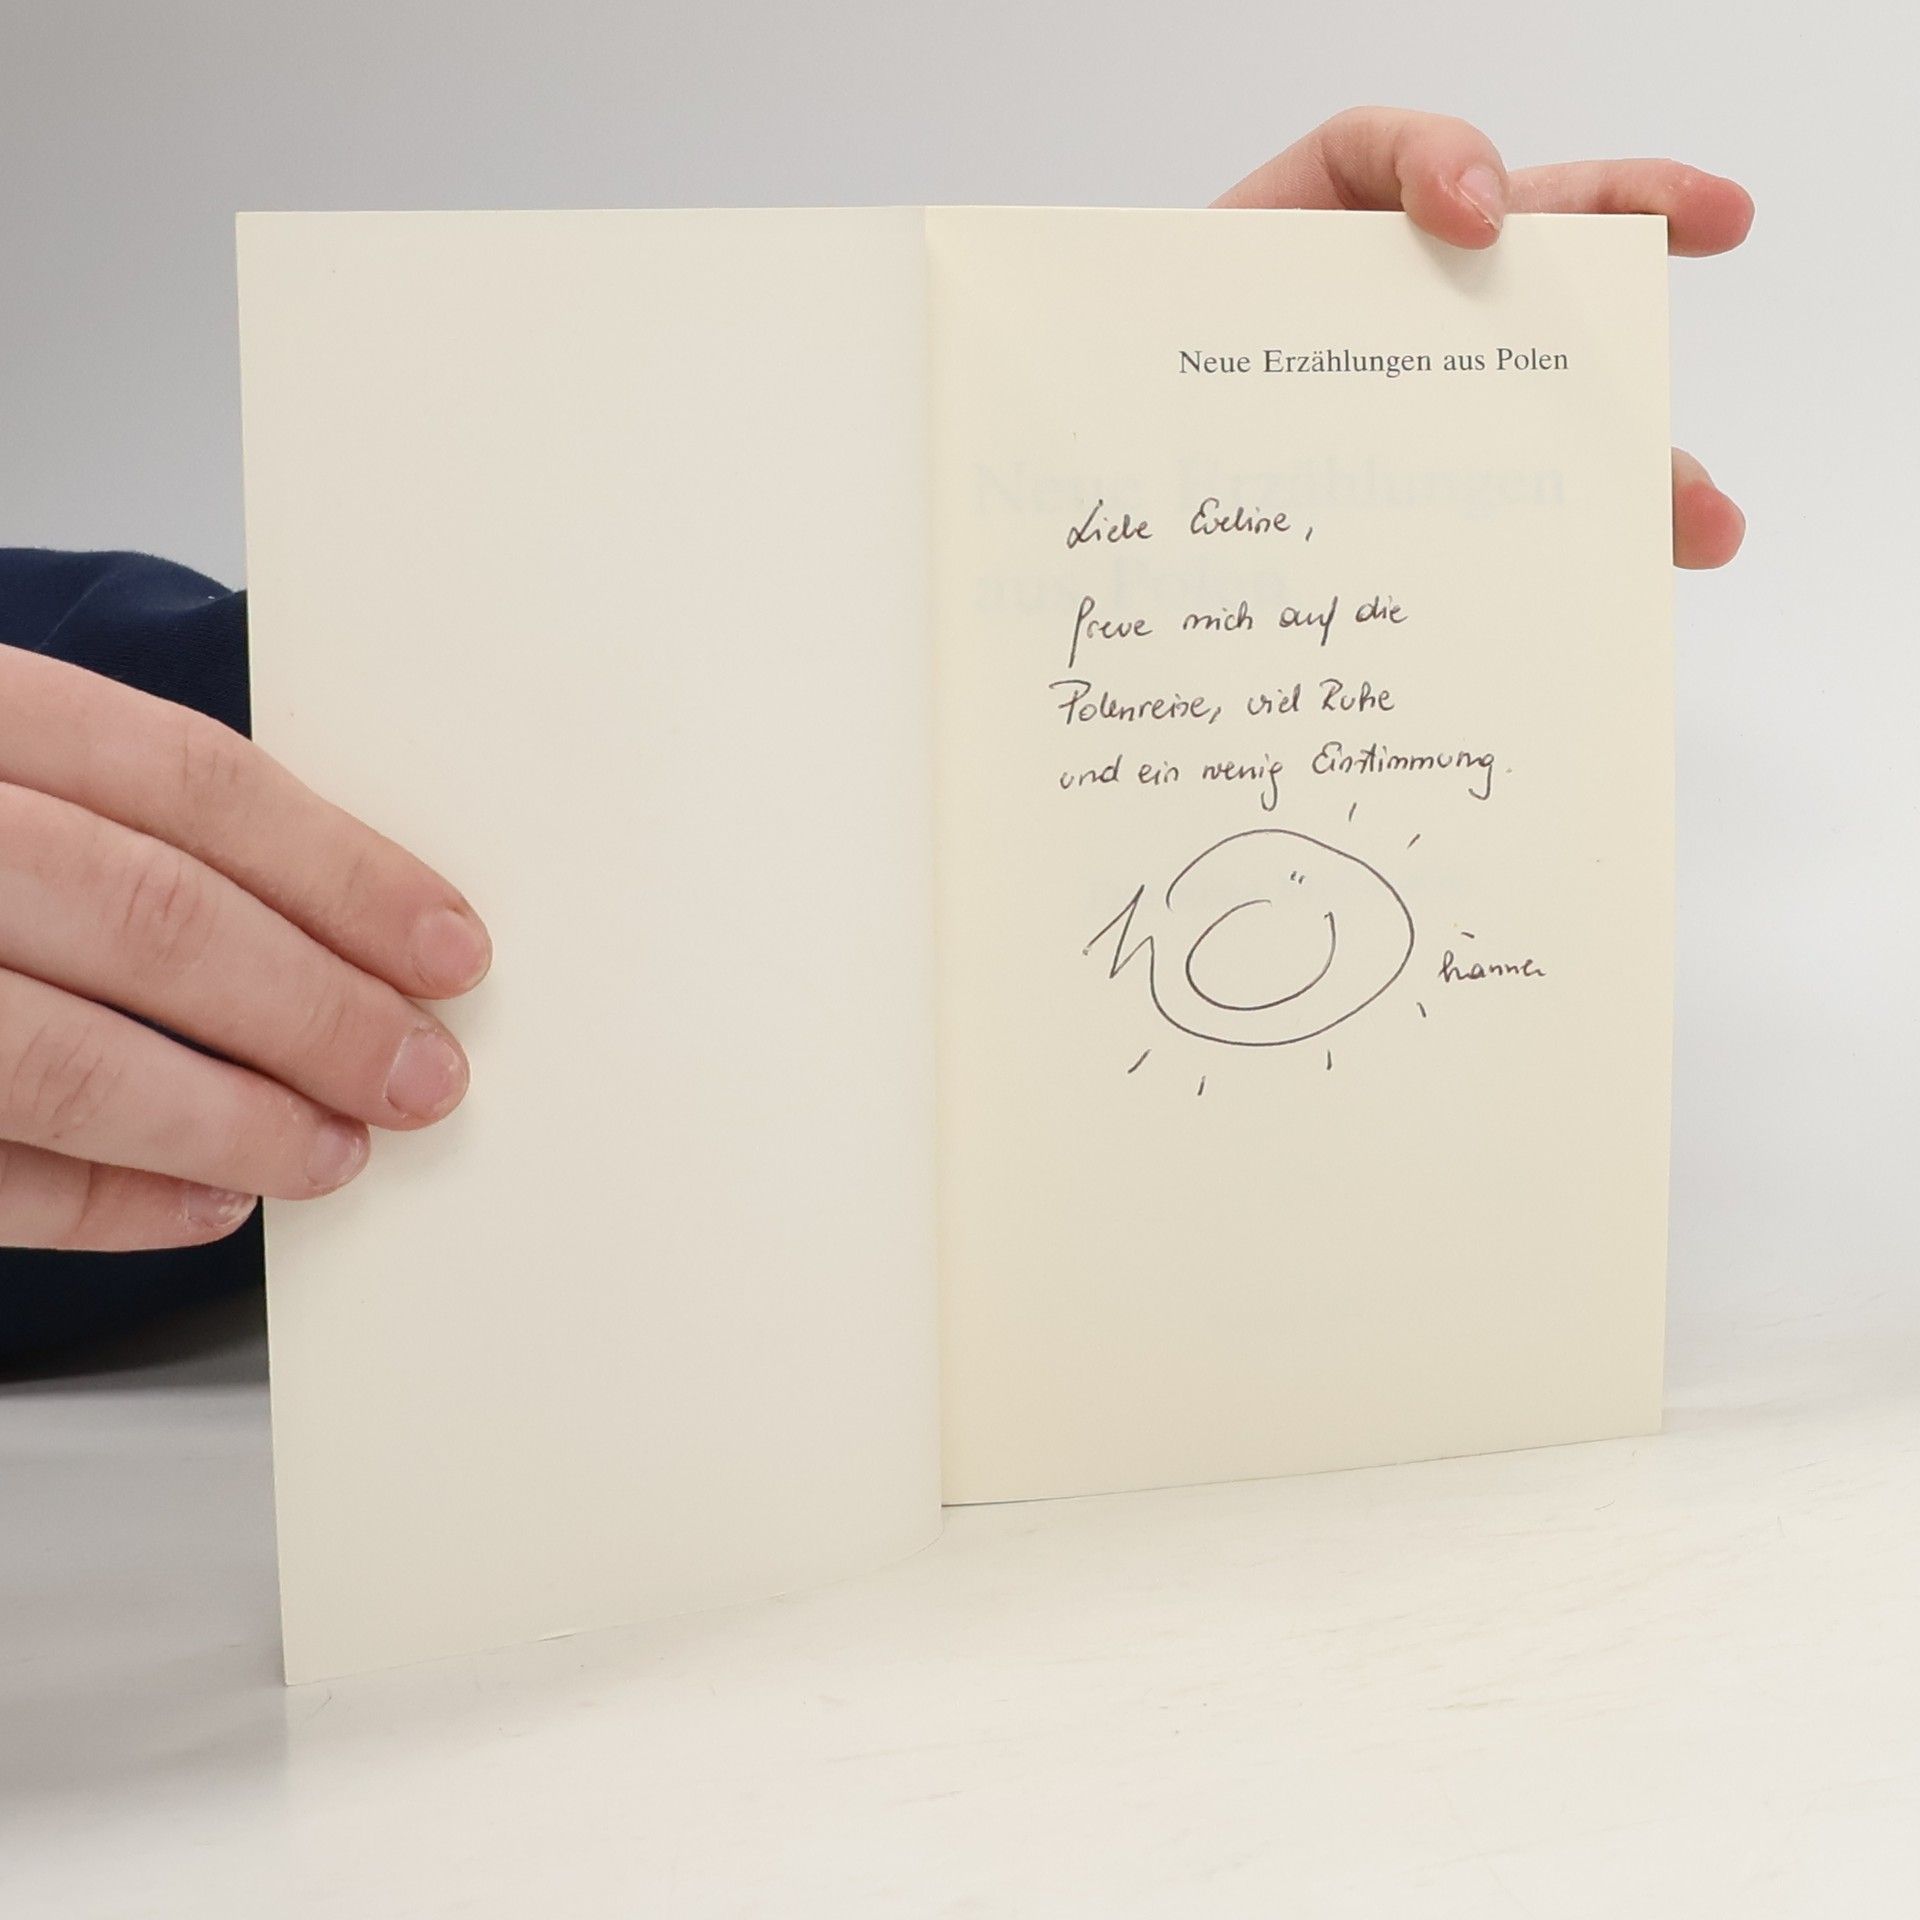 Neue Erzählungen aus Polen
Liebe Eveline,
freue mich auf die
Polenreise, viel Ruhe
und ein wenig Einstimmung.